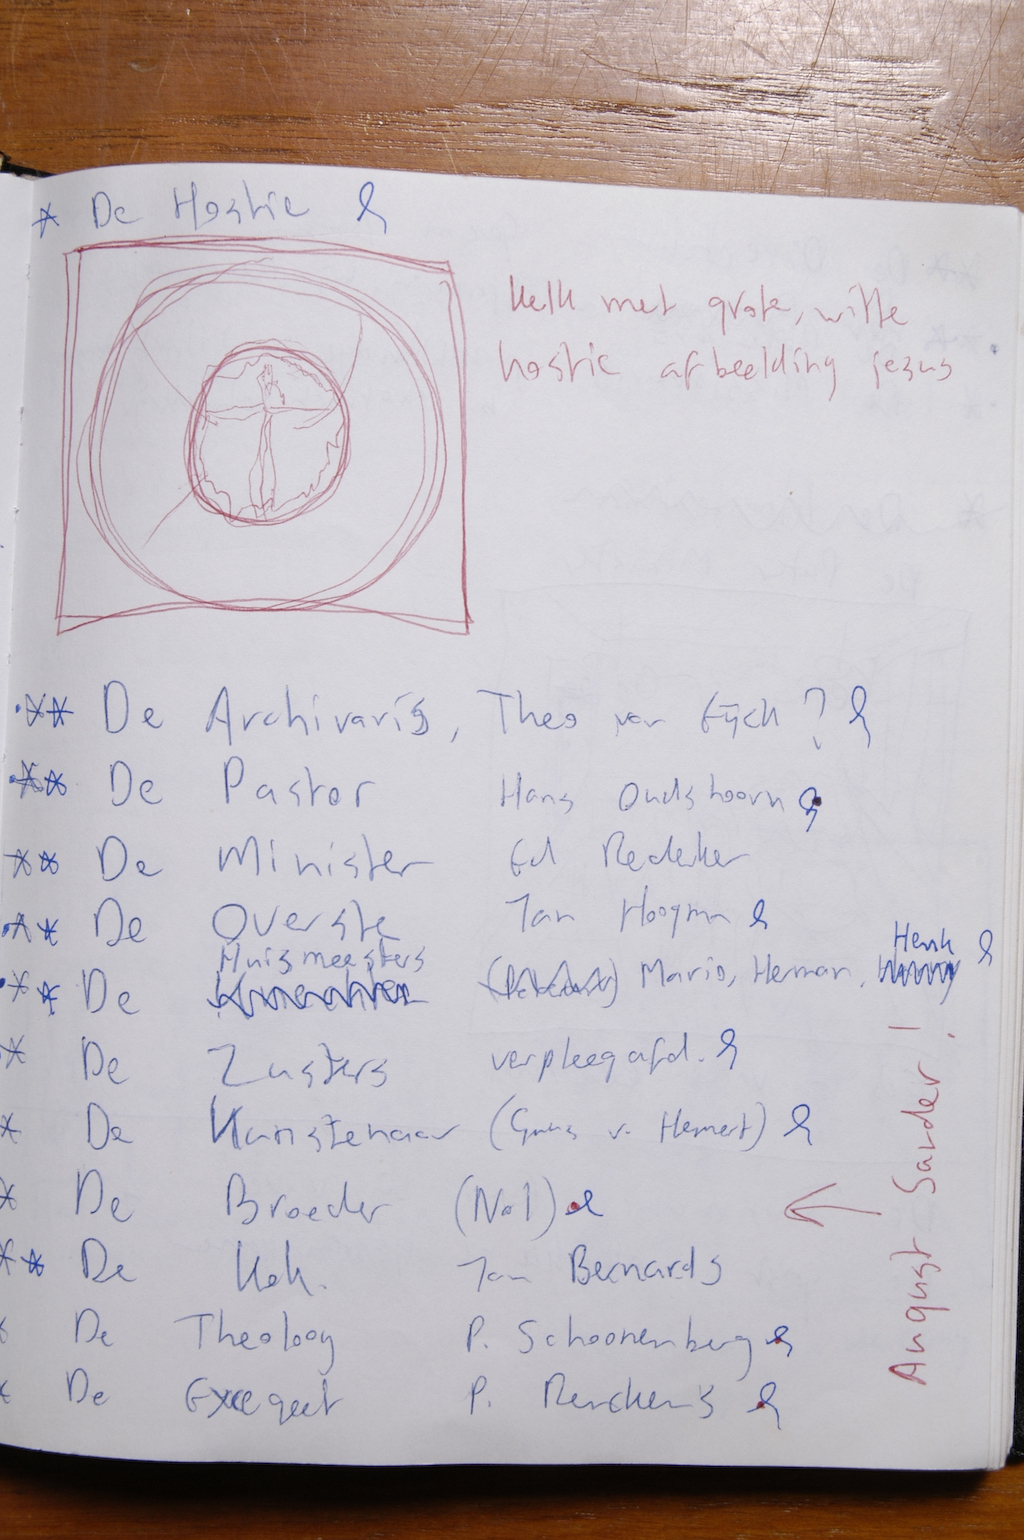 * De Hostie
kelk met grote, witte
hostie afbeelding jezus
** De Archivaris, Theo van Eijck?
** De Pastor Hans Oudshoorn
** De Minister Ed Redeker
** De Overste Jan Hoogma
** De Huismeesters Mario, Herman, Henk
* De Zusters verpleegafd.
* De Kunstenaar (Guus v. Hemert)
* De Broeder (Nol)
** De Kok. Jan Bernards
* De Theoloog P. Schoonenberg
* De Exegeet P. Renckens
August Sander!